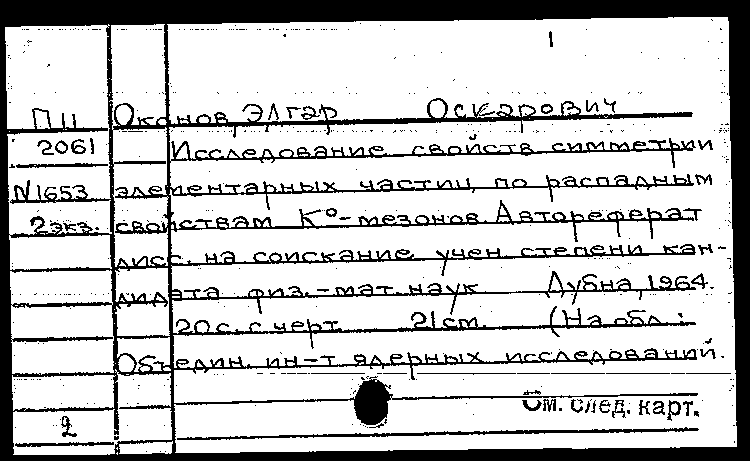 П11 Оканов, Элгар Оскарович
2061 Исследование свойств симметрии
N1653 элементарных частиц, по распадным
2экз. свойствам K°-мезонов. Автореферат
дисс. на соискание учен. степени кан-
дидата физ.-мат. наук Дубна, 1964.
20с. с черт. 21см. (На обл.:
Объедин. ин-т ядерных исследований.
См. след. карт.
2